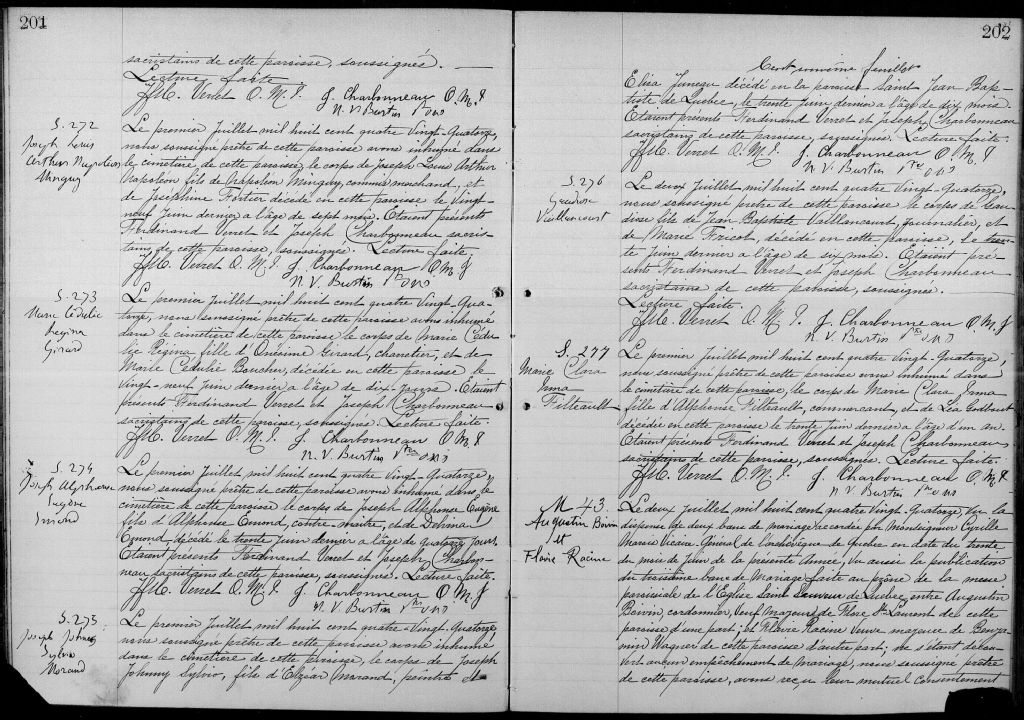 201
sacristains de cette paroisse, soussignés.
Lecture faite.
F. Verret O. M. I. J. Charbonneau O. M. I
N. V. Burtin Ptre OMI
S. 272
Joseph Louis
Arthur Napoléon
Minguy
Le premier Juillet mil huit cent quatre Vingt-Quatorze,
nous soussigné prêtre de cette paroisse avons inhumé dans
le cimetière de cette paroisse, le corps de Joseph Louis Arthur
Napoléon fils de Napoléon Minguy, commis marchand, et
de Joséphine Fortier décédé en cette paroisse le Vingt-
neuf Juin dernier à l'âge de sept mois. Étaient présents
Ferdinand Verret et Joseph Charbonneau sacris-
tains de cette paroisse, soussignés. Lecture faite.
F. Verret O. M. I. J. Charbonneau O M I
N. V. Burtin Ptre OMI
S. 273
Marie Cédulie
Régina
Girard
Le premier Juillet mil huit cent quatre Vingt-Qua-
torze, nous soussigné prêtre de cette paroisse avons inhumé
dans le cimetière de cette paroisse le corps de Marie Cédu-
lie Régina fille d'Onésime Girard, charretier, et de
Marie Cédulie Boucher, décédée en cette paroisse le
Vingt-neuf Juin dernier à l'âge de dix jours. Étaient
présents Ferdinand Verret et Joseph Charbonneau
sacristains de cette paroisse, soussignés. Lecture faite.
F. Verret O. M. I. J. Charbonneau O M I
N. V. Burtin Ptre OMI
S. 274
Joseph Alphonse
Eugène
Emond
Le premier Juillet mil huit cent quatre Vingt-Quatorze,
nous soussigné prêtre de cette paroisse avons inhumé dans le
cimetière de cette paroisse le corps de Joseph Eugène
fils d'Alphonse Emond, contre-maître, et de Delvina
Emond, décédé le trente Juin dernier à l'âge de quatorze jours.
Étaient présents Ferdinand Verret et Joseph Charbon-
neau sacristains de cette paroisse, soussignés. Lecture faite.
F. Verret O. M. I. J. Charbonneau O. M. I
N. V. Burtin Ptre OMI
S. 275
Joseph Johnny
Sylvio
Morand
Le premier Juillet mil huit cent quatre-Vingt-Quatorze,
nous soussigné prêtre de cette paroisse avons inhumé
dans le cimetière de cette paroisse, le corps de Joseph
Johnny Sylvio, fils d'Elzéar Morand, peintre et
202
Cent unième feuillet
Eliza Juneau décédé en la paroisse Saint Jean Bap-
tiste de Québec, le trente Juin dernier à l'âge de six mois.
Étaient présents Ferdinand Verret et Joseph Charbonneau
sacristains de cette paroisse, soussignés. Lecture faite.
F. Verret O. M. I. J. Charbonneau O. M. I
N. V. Burtin Ptre OMI
S. 276
Vaillancourt
Le deux Juillet mil huit cent quatre Vingt-Quatorze,
nous soussigné prêtre de cette paroisse le corps de
fils de Jean Baptiste Vaillancourt, journalier, et
de Marie décédé en cette paroisse, le tren-
te Juin dernier à l'âge de six mois. Étaient pré-
sents Ferdinand Verret et Joseph Charbonneau
sacristains de cette paroisse, soussignés.
Lecture faite.
F. Verret O. M. I. J. Charbonneau O M I
N. V. Burtin Ptre OMI
S. 277
Marie Clara
Irma
Filteault
Le premier Juillet mil huit cent quatre Vingt-Quatorze,
nous soussigné prêtre de cette paroisse avons inhumé dans
le cimetière de cette paroisse, le corps de Marie Clara Irma
fille d'Alphonse Filteault, commerçant, et de Léa Godbout
décédée en cette paroisse le trente Juin dernier à l'âge d'un an.
Étaient présents Ferdinand Verret et Joseph Charbonneau,
sacristains de cette paroisse, soussignés. Lecture faite.
F. Verret O. M. I. J. Charbonneau O. M. I.
N. V. Burtin Ptre OMI
M 43
Augustin Boivin
et
Flavie Racine
Le deux Juillet mil huit cent quatre Vingt-Quatorze, Vu la
dispense de deux bans de mariage accordée par Monseigneur Cyrille
Marois Vicaire Général de l'archevêque de Québec en date du trente
du mois de Juin de la présente Année, Vu aussi la publication
du troisième banc de Mariage faite au prône de la messe
paroissiale de l'Eglise Saint Sauveur de Québec, entre Augustin
Boivin cordonnier, Veuf majeur de Flore St-Laurent de cette
paroisse d'une part; et Flavie Racine Veuve majeure de Benja-
min Wagner de cette paroisse d'autre part; ne s'étant décou-
vert aucun empêchement de Mariage, nous soussigné prêtre
de cette paroisse, avons reçu leur mutuel consentement